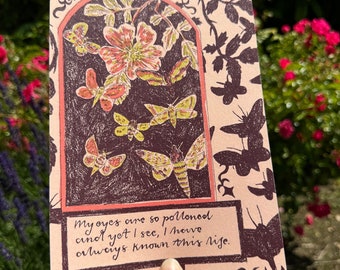 My eyes are so pollened
and yet I see, I have
always known this life.